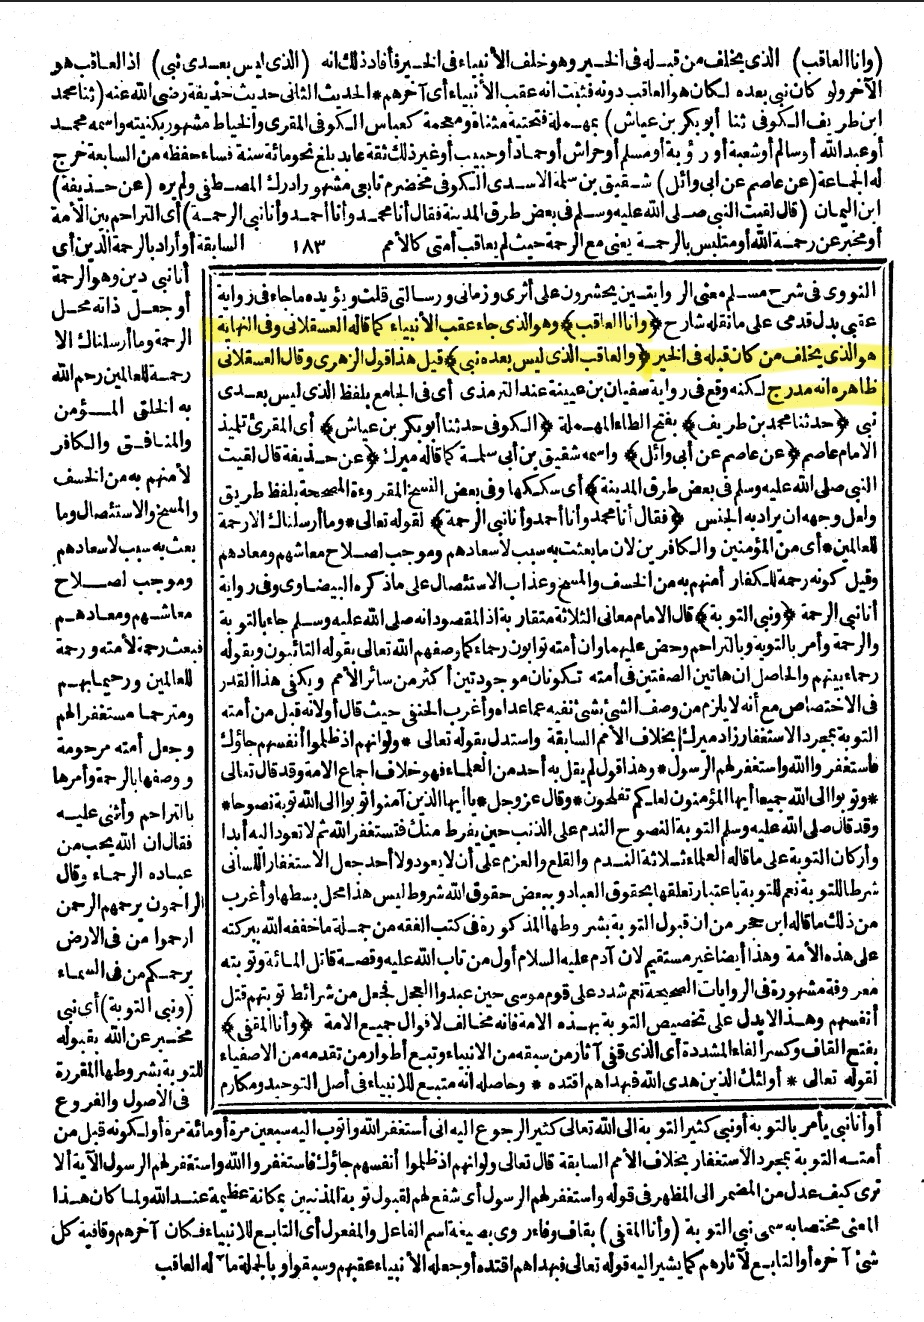 (وانا العاقب) الذي يخلف من قبله في الخير وهو خلف الأنبياء في الخير فأفاد ذلك انه (الذي ليس بعدي نبي) اذ العاقب هو
الآخر ولو كان نبي بعده لكان هو العاقب دونه فثبت انه عقب الأنبياء أي آخرهم * الحديث الثاني حديث حذيفة رضي الله عنه (ثنا محمد
ابن طريف الكوفي ثنا أبو بكر بن عياش) بمهملة فتحتية مثناة ومعجمة كعباس الكوفي المقرى والخياط مشهور بكنيته واسمه محمد
أو عبد الله أو سالم أو شعبة أو رؤبة أو مسلم أو خراش أو حماد أو حبيب أو غير ذلك ثقة عابد بلغ نحو مائة سنة فساء حفظه من السابعة خرج
له الجماعة (عن عاصم عن ابى وائل) شقيق بن سلمة الاسدى الكوفى مخضرم تابعى مشهور ادرك المصطفى ولم يره (عن حذيفة)
ابن اليمان (قال لقيت النبي صلى الله عليه وسلم في بعض طرق المدينة فقال أنا محمد وأنا أحمد وأنا نبي الرحمة) أى التراحم بين الأمة
أو مخبر عن رحمة الله أو متلبس بالرحمة يعنى مع الرحمة حيث لم يعاقب أمتى كالأمم ١٨٣ السابقة أو أراد بالرحمة الدين أى
النووى فى شرح مسلم معنى الروايتين يحشرون على أثرى وزمانى ورسالتى قلت ويؤيده ما جاء فى رواية
عقبى بدل قدمى على ما نقله شارح (وانا العاقب) وهو الذى جاء عقب الأنبياء كما قاله العسقلانى وفى النهاية
هو الذى يخلف من كان قبله فى الخير (والعاقب الذى ليس بعده نبى) قيل هذا قول الزهرى وقال العسقلانى
ظاهره انه مدرج لكنه وقع فى رواية سفيان بن عيينة عند الترمذى أى فى الجامع بلفظ الذى ليس بعدى
نبى (حدثنا محمد بن طريف) بفتح الطاء المهملة (الكوفى حدثنا أبو بكر بن عياش) أى المقرئ تلميذ
الامام عاصم (عن عاصم عن أبى وائل) واسمه شقيق بن أبى سلمة كما قاله ميرك (عن حذيفة قال لقيت
النبى صلى الله عليه وسلم فى بعض طرق المدينة) أى سككها وفى بعض النسخ المقروءة المصححة بلفظ طريق
ولعل وجهه ان يراد به الجنس (فقال أنا محمد وأنا أحمد وأنا نبى الرحمة) لقوله تعالى * وما أرسلناك الا رحمة
للعالمين * أى من المؤمنين والكافرين لان ما بعثت به سبب لاسعادهم وموجب لصلاح معاشهم ومعادهم
وقيل كونه رحمة للكفار أمنهم به من الخسف والمسخ وعذاب الاستئصال على ما ذكره البيضاوى وفى رواية
أنا نبى الرحمة (ونبى التوبة) قال الامام معانى الثلاثة متقاربة اذ المقصود انه صلى الله عليه وسلم جاء بالتوبة
والرحمة وأمر بالتوبة وبالتراحم وحض عليهما وان أمته توابون رحماء كما وصفهم الله تعالى بقوله التائبون وبقوله
رحماء بينهم والحاصل ان هاتين الصفتين فى أمته تكونان موجودتين أكثر من سائر الأمم ويكفى هذا القدر
فى الاختصاص مع أنه لا يلزم من وصف الشئ بشئ نفيه عما عداه وأغرب الحنفى حيث قال أو لانه قبل من أمته
التوبة بمجرد الاستغفار زاد ميرك بخلاف الأمم السابقة واستدل بقوله تعالى * ولو انهم اذ ظلموا أنفسهم جاؤك
فاستغفروا الله واستغفر لهم الرسول * وهذا قول لم يقل به أحد من العلماء فهو خلاف اجماع الامة وقد قال تعالى
* وتوبوا الى الله جميعا أيها المؤمنون لعلكم تفلحون * وقال عز وجل * يا أيها الذين آمنوا توبوا الى الله توبة نصوحا *
وقد قال صلى الله عليه وسلم التوبة النصوح الندم على الذنب حين يفرط منك فتستغفر الله ثم لا تعود اليه أبدا
وأركان التوبة على ما قاله العلماء ثلاثة الندم والقلع والعزم على أن لا يعود ولا أحد جعل الاستغفار اللسانى
شرطا للتوبة نعم للتوبة باعتبار تعلقها بحقوق العباد وببعض حقوق الله شروط ليس هذا محل بسطها وأغرب
من ذلك ما قاله ابن حجر من ان قبول التوبة بشروطها المذكورة فى كتب الفقه من جملة ما خففه الله ببركته
على هذه الأمة وهذا أيضا غير مستقيم لان آدم عليه السلام أول من تاب الله عليه وقصة قاتل المائة وتوبته
معروفة مشهورة فى الروايات الصحيحة نعم شدد على قوم موسى حين عبدوا العجل فجعل من شرائط توبتهم قتل
أنفسهم وهذا لا يدل على تخصيص التوبة بهذه الامة فانه مخالف لاقوال جميع الامة (وأنا المقفى)
بفتح القاف وكسر الفاء المشددة أى الذى قفى آثار من سبقه من الانبياء وتبع أطوار من تقدمه من الاصفياء
لقوله تعالى * أولئك الذين هدى الله فبهداهم اقتده * وحاصله انه متبع للانبياء فى أصل التوحيد ومكارم
أنا نبى دين وهو الرحمة
أو جعل ذاته محل
الرحمة وما أرسلناك الا
رحمة للعالمين رحم الله
به الخلق المؤمن
والمنافق والكافر
لأمنهم به من الخسف
والمسخ والاستئصال وما
بعث به سبب لاسعادهم
وموجب لصلاح
معاشهم ومعادهم
فبعث رحمة لأمته ورحمة
للعالمين ورحيما بهم
ومترحما مستغفرا لهم
وجعل أمته مرحومة
ووصفها بالرحمة وأمرها
بالتراحم وأثنى عليه
فقال ان الله يحب من
عباده الرحماء وقال
الراحمون يرحمهم الرحمن
ارحموا من فى الارض
يرحمكم من فى السماء
(ونبى التوبة) أى نبى
مخبر عن الله بقبوله
للتوبة بشروطها المقررة
فى الأصول والفروع
أو أنا نبى يأمر بالتوبة أو نبى كثير التوبة الى الله تعالى كثير الرجوع اليه انى أستغفر الله واتوب اليه سبعين مرة أو مائة مرة أو لكونه قبل من
أمته التوبة بمجرد الاستغفار بخلاف الأمم السابقة قال تعالى ولو انهم اذ ظلموا أنفسهم جاؤك فاستغفروا الله واستغفر لهم الرسول الآية ألا
ترى كيف عدل من المضمر الى المظهر فى قوله واستغفر لهم الرسول أى شفع لهم لقبول توبة المذنبين بمكانة عظيمة عند الله ولما كان هذا
المعنى مختصا به سمى نبى التوبة (وأنا المقفى) بقاف وفاء روى بصيغة اسم الفاعل والمفعول أى التابع للانبياء فكان آخرهم وقافية كل
شئ آخره أو التابع لآثارهم كما يشير اليه قوله تعالى فبهداهم اقتده أو جعله الأنبياء عقبهم وسبقوا وبالجملة له العاقب